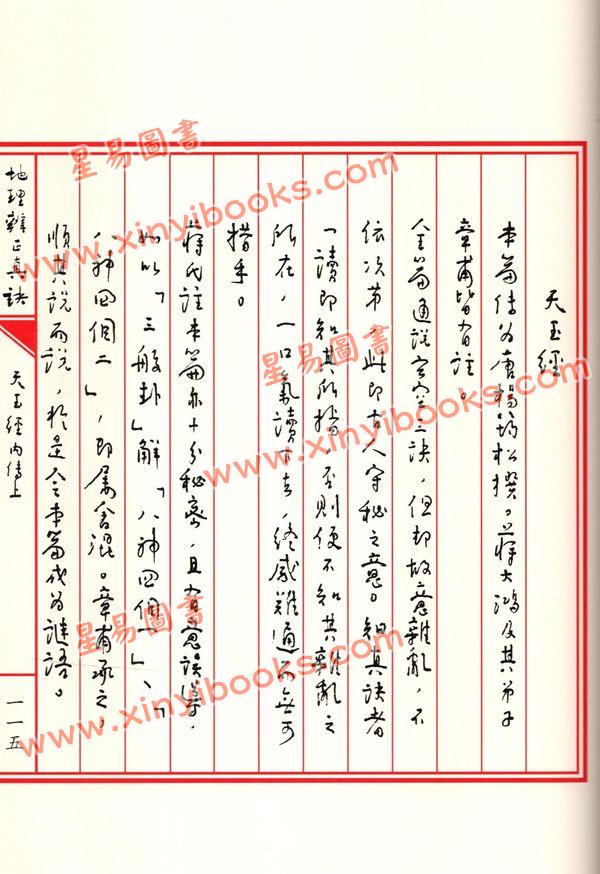 天玉經
本篇傳為唐楊筠松撰。蔣大鴻及其弟子
章甫皆有註。
全篇通說玄空三訣，但却故意雜亂，不
依次第，此即古人守秘之意。知其訣者
一讀即知其所指，否則便不知其雜亂之
所在，一口氣讀下去，終感難通而無可
措手。
蔣氏註本篇亦十分秘密，且有意誤導，
如以「三般卦」解「八神四個一」、「
八神四個二」，即屬含混。章甫承之，
順其說而說，於是令本篇成為謎語。
地理辨正真訣
天玉經內傳上
一一五
星易圖書
www.xinyibooks.com
星易圖書
www.xinyibooks.com
星易圖書
www.xinyibooks.com